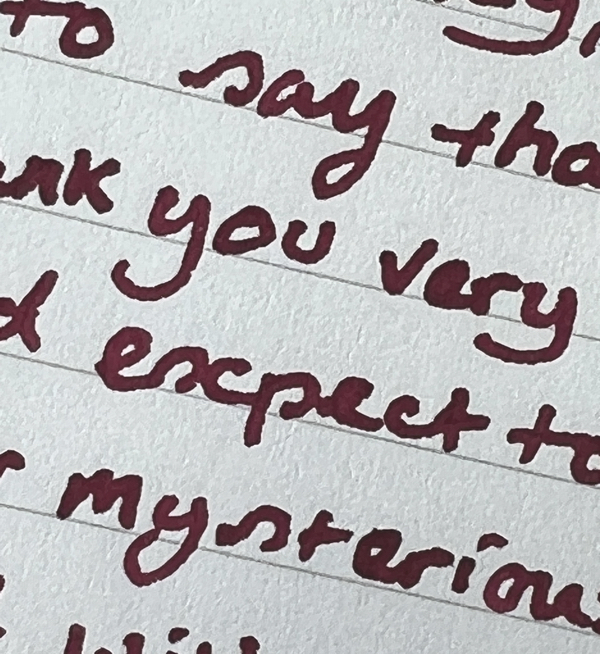 to say tha
ank you very
d expect to
r mysteriou
will